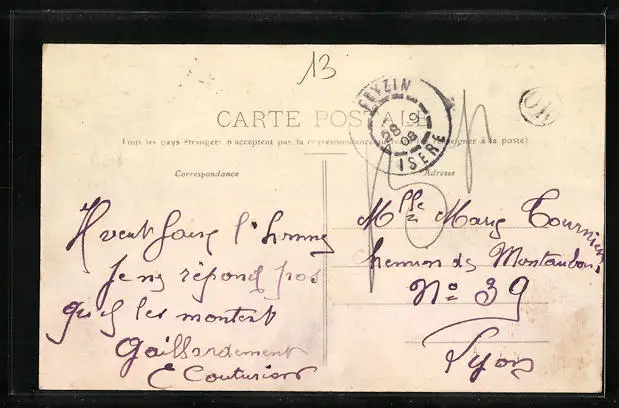 13
CARTE POSTALE
Tous les pays étrangers n'acceptent pas la correspondance à la poste)
FEYZIN
28 9
08
ISERE
OR
Correspondance
Adresse
l'
Je ne répond pas
les montent
Gaillardement
E Couturier
Mlle Mary Tournier
Chemin de Montauban
No 39
Lyon